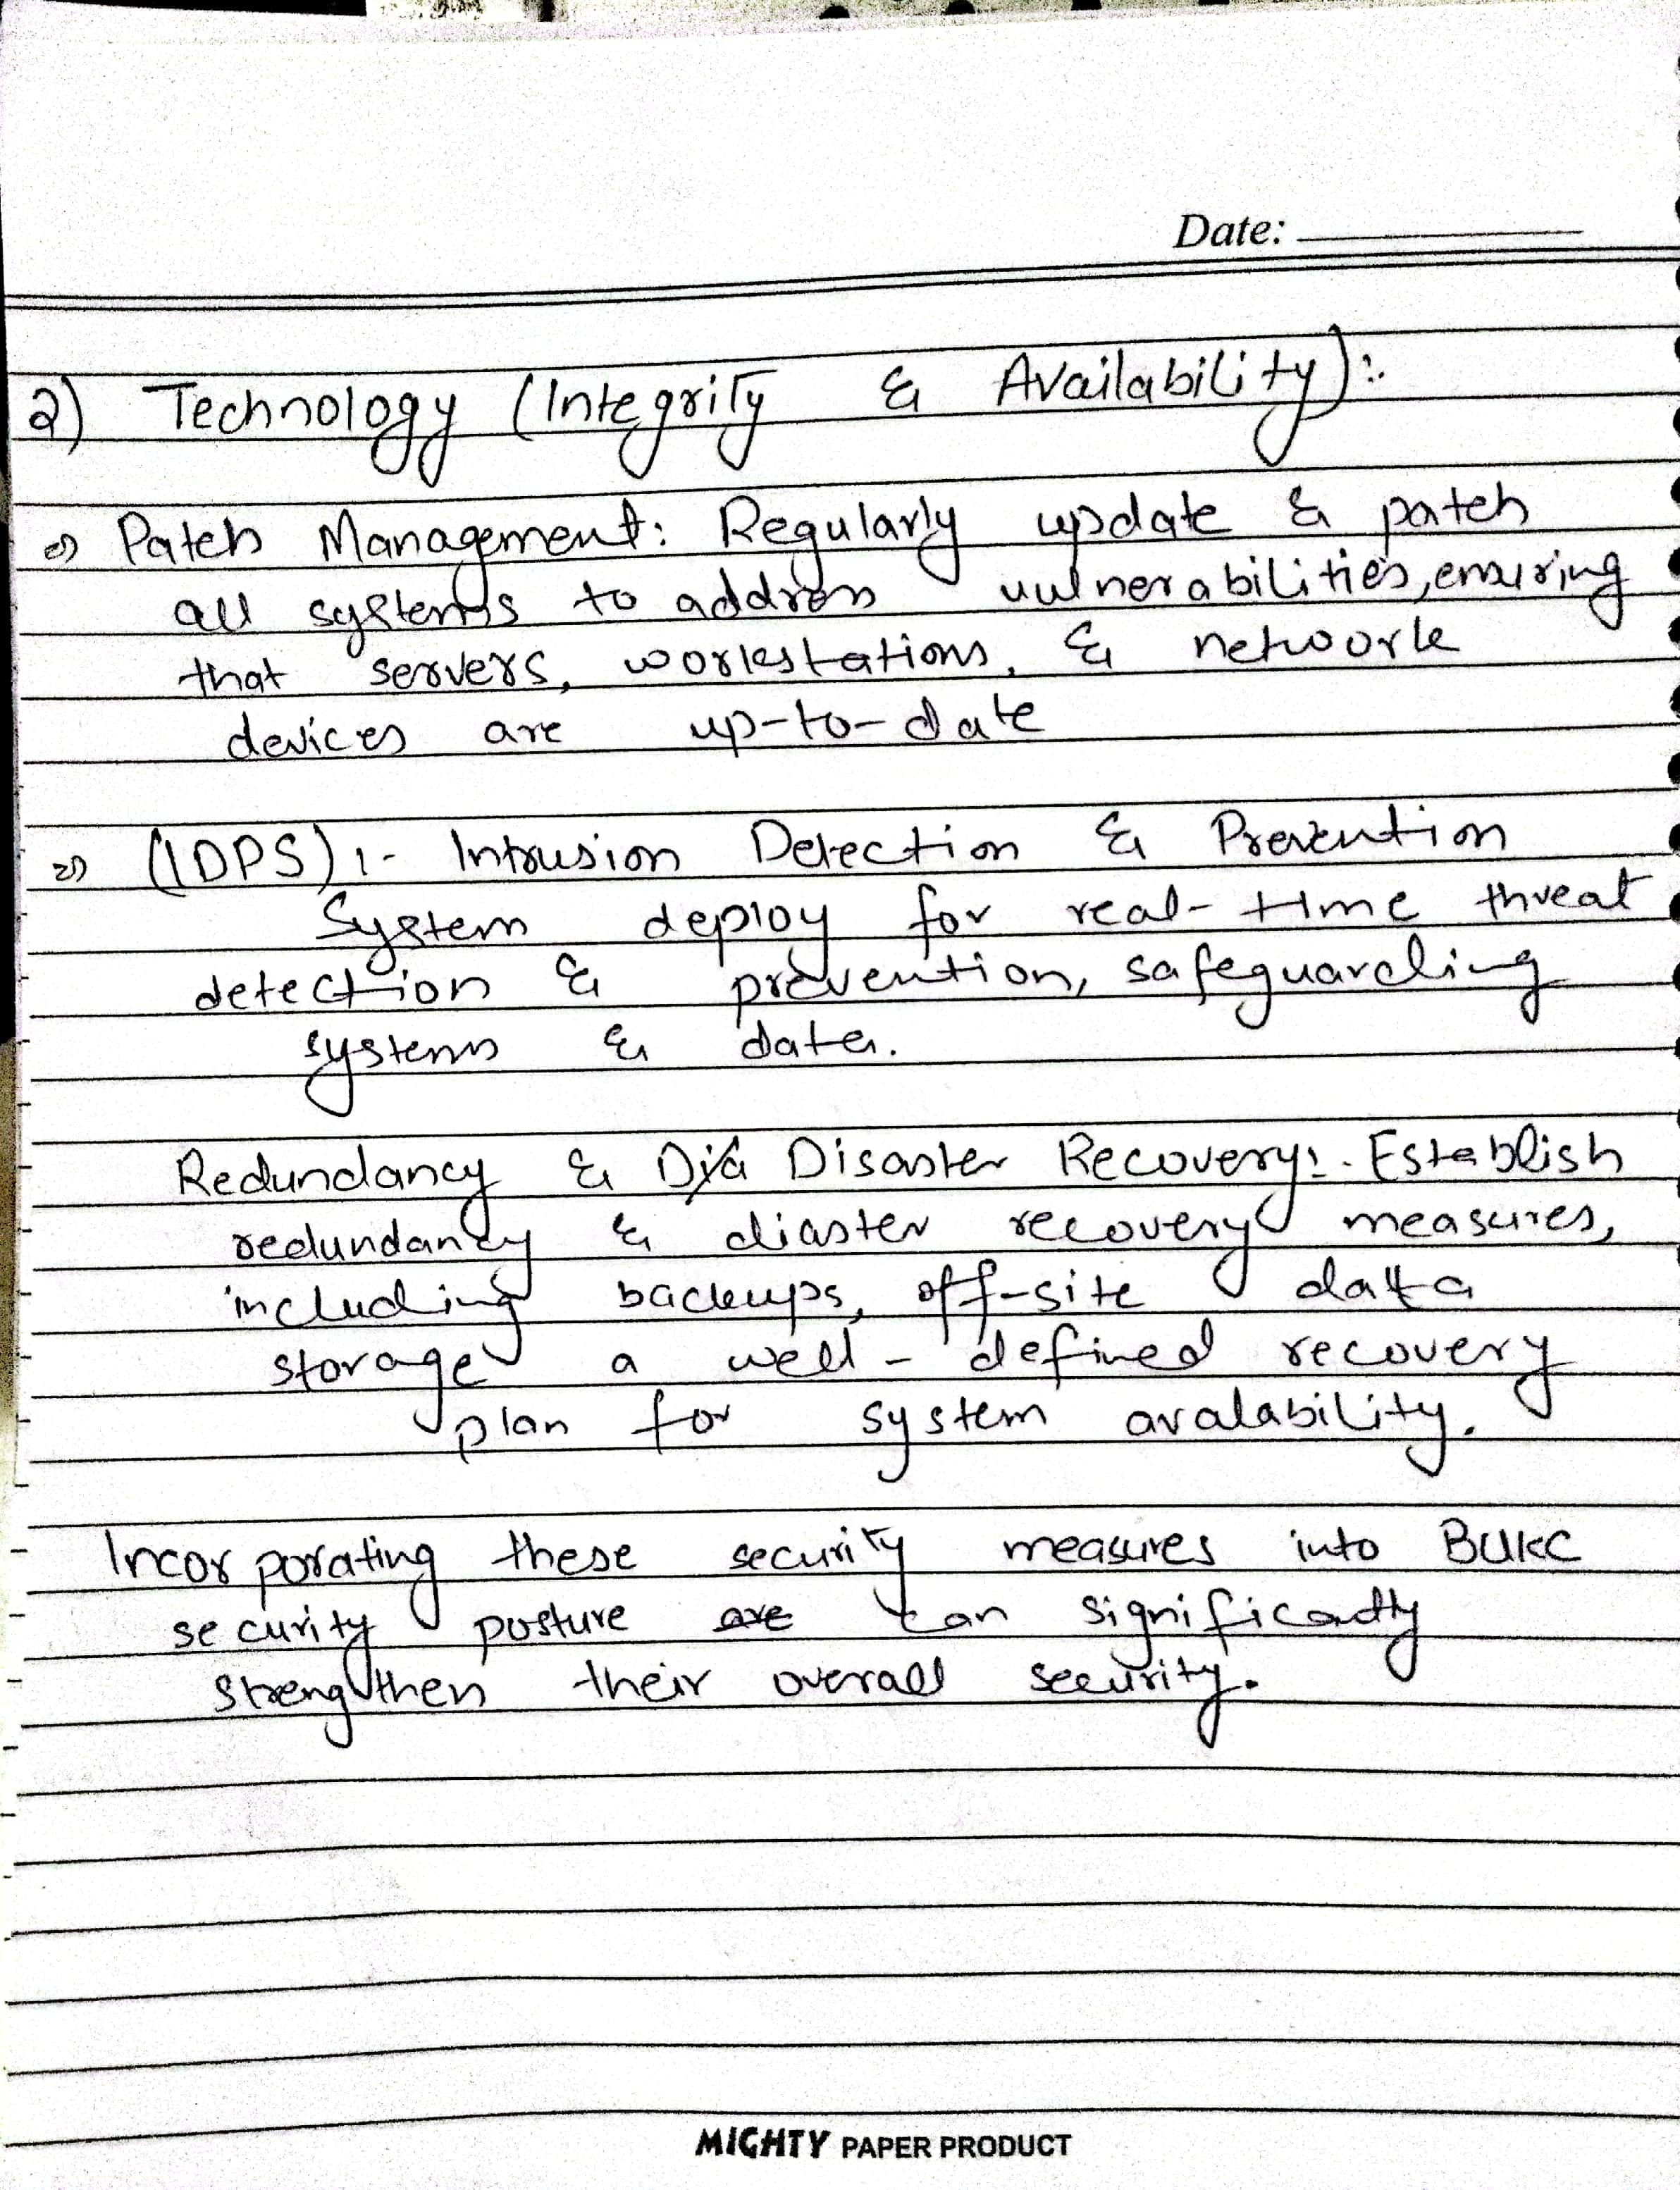 Date:
2) Technology (Integrity & Availability):-
=> Patch Management: Regularly update & patch
all systems to address vulnerabilities, ensuring
that servers, workstations, & network
devices are up-to-date
=> (IDPS):- Intrusion Detection & Prevention
System deploy for real-time threat
detection & prevention, safeguarding
systems & data.
Redundancy & Disaster Recovery:- Establish
redundancy & diaster recovery measures,
including backups, off-site data
storage a well-defined recovery
plan for system avalability.
Incorporating these security measures into BUKC
security posture can significantly
strengthen their overall security.
MIGHTY PAPER PRODUCT